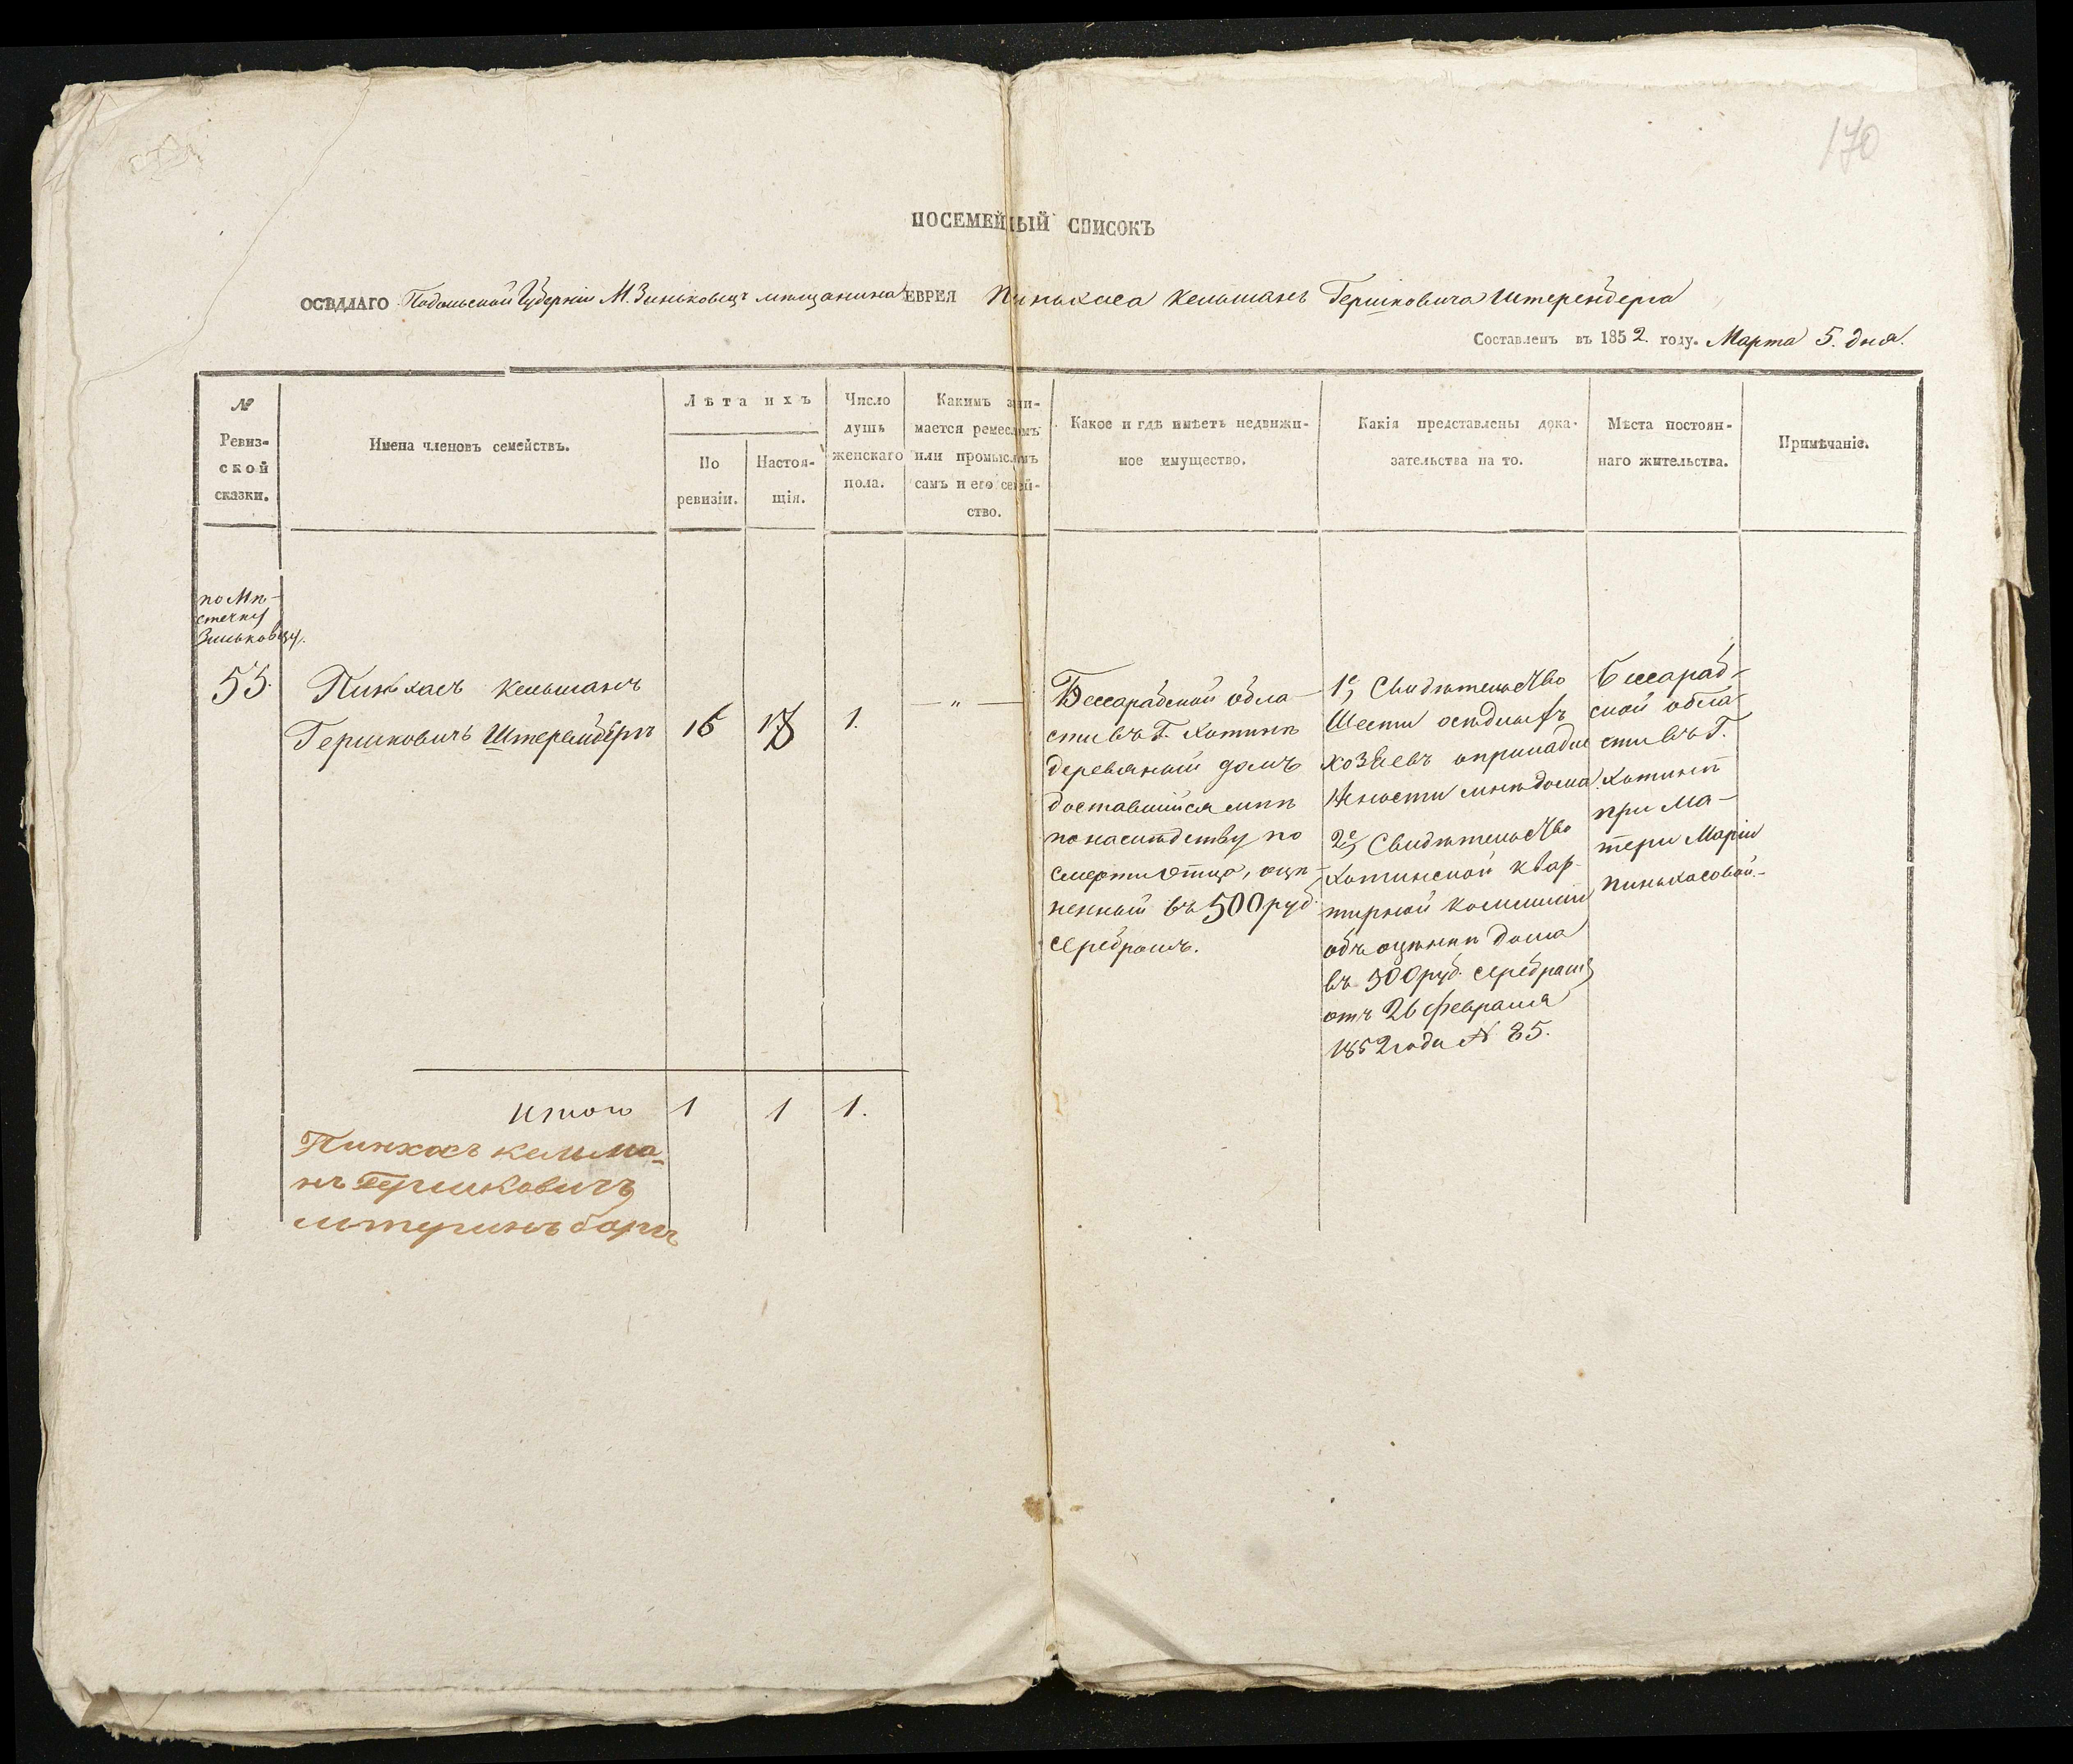 170
ПОСЕМЕЙНЫЙ СПИСОКЪ
ОСѢДЛАГО Подольской Губерніи М. Зиньковецъ мѣщанина ЕВРЕЯ Пинькаса Кельманъ Гершковича Штеренберга
Составленъ въ 1852. году. Марта 5. дня.
№
Ревиз-
ской
сказки.
Имена членовъ семействъ.
Лѣта ихъ
По
ревизіи.
Настоя-
щія.
Число
душъ
женскаго
пола.
Какимъ зани-
мается ремесломъ
или промысломъ
самъ и его семей-
ство.
Какое и гдѣ имѣетъ недвижи-
мое имущество.
Какія представлены дока-
зательства на то.
Мѣста постоян-
наго жительства.
Примѣчаніе.
по Мѣ-
стечку
Зиньковцу.
53.
Пинькасъ Кельманъ
Гершковичъ Штеренбергъ
16
18
1.
— „ —
Бессарабской обла-
сти въ Г. Хотинѣ
деревяный домъ
доставшийся мнѣ
по наслѣдству по
смерти отца, оцѣ-
ненный въ 500 руб.
серебромъ.
1е, Свидѣтельство
Шести осѣдлыхъ
хозяевъ о принадле
жности мнѣ дома.
2е, Свидѣтельство
Хотинской квар-
тирной коммисіи
объ оцѣнкѣ дома
въ 500 руб. серебромъ
отъ 26 февраля
1852 года № 85.
Бессараб-
ской обла-
сти въ Г.
Хотинѣ
при Ма-
тери Маріи
Пинькасовой.-
Итого
1
1
1.
Пинхасъ Кельма-
нъ Гершковичъ
Штеринъбаргъ